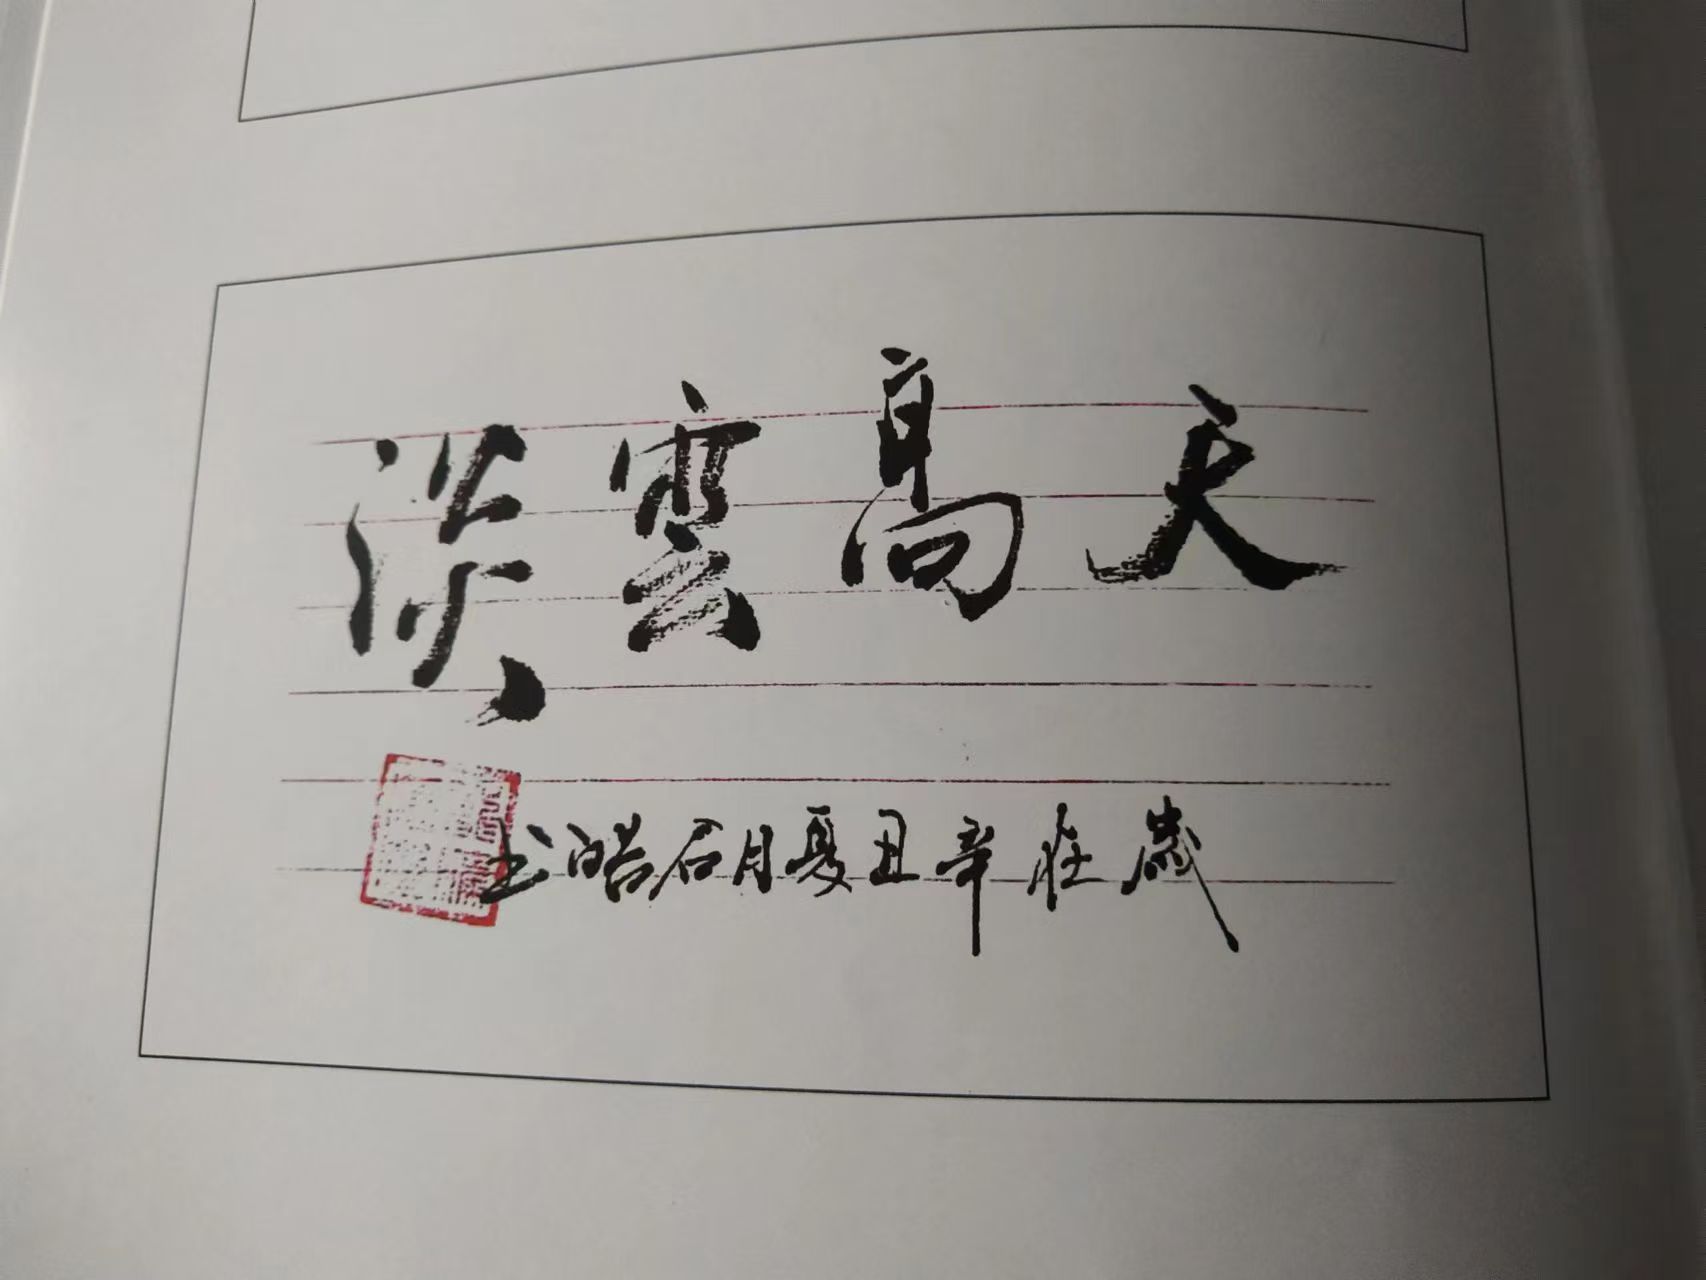 天高雲淡
歲在辛丑夏月石皓书